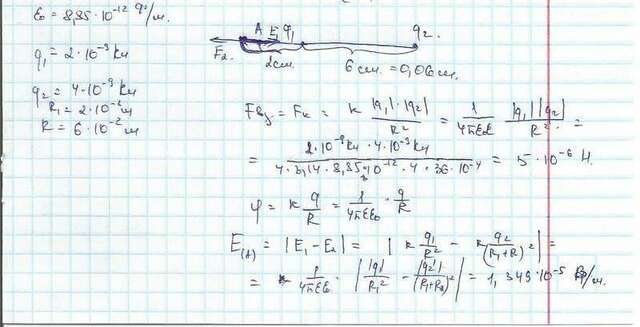 ε₀ = 8,85·10⁻¹² ф/м.
q₁ = 2·10⁻⁹ Кл
q₂ = 4·10⁻⁹ Кл
R₁ = 2·10⁻² м
R = 6·10⁻² м
A E₁ q₁ q₂
F₂. 2см. 6см. = 0,06м.
Fвз = Fк = k |q₁|·|q₂| / R² = 1/4πεε₀ |q₁||q₂| / R² =
= 2·10⁻⁹Кл·4·10⁻⁹Кл / 4·3,14·8,85·10⁻¹²·4·36·10⁻⁴ = 5·10⁻⁶ Н.
φ = k q/R = 1/4πεε₀ · q/R
E(A) = |E₁ − E₂| = | k q₁/R² − k q₂/(R₁+R)² | =
= 1/4πεε₀ · | |q₁|/R₁² − |q₂|/(R₁+R₂)² | = 1,349·10⁻⁵ В/м.